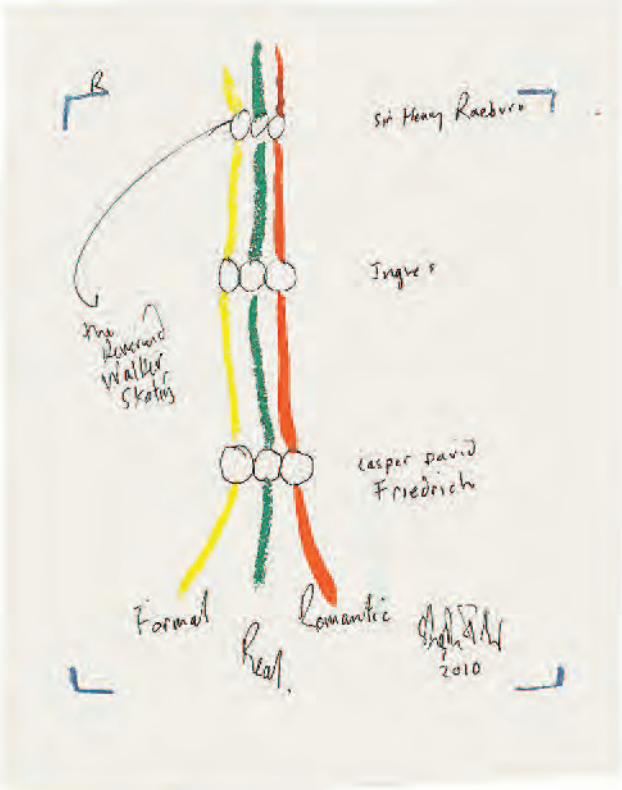 B
Sir Henry Raeburn
Ingres
the
Reverend
Walker
Skating
Casper David
Friedrich
Formal
Romantic
Real.
2010